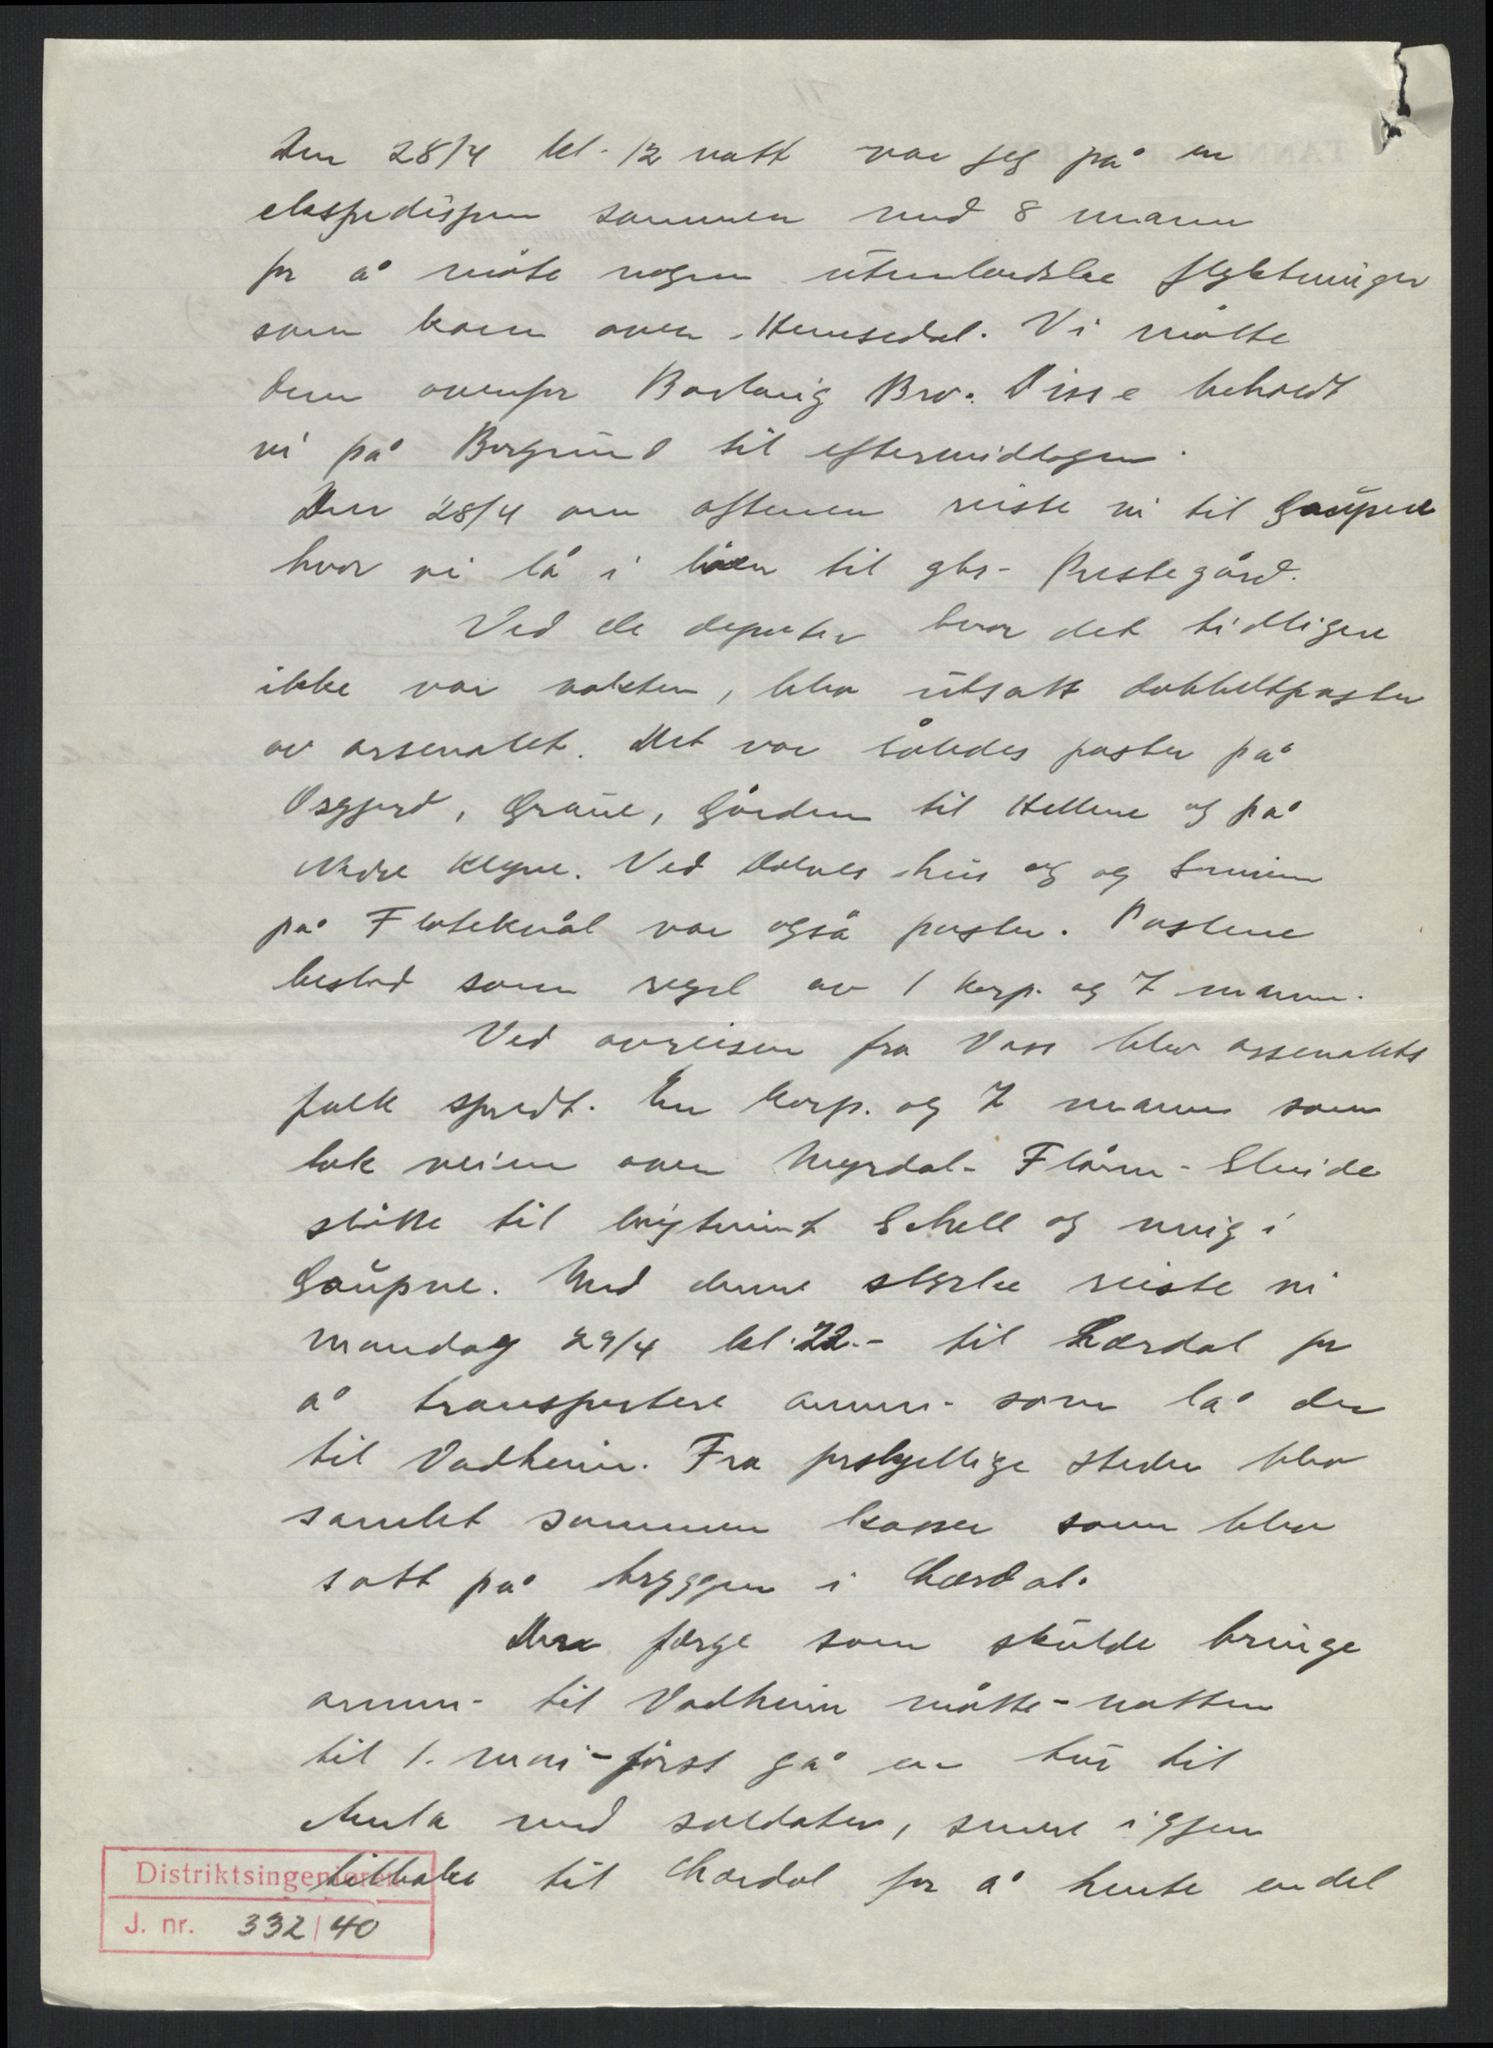 Den 28/4 kl. 12 natt var jeg på en
ekspedisjon sammen med 8 mann
for å møte nogen utenlandske flyktninger
som kom over Hemsedal. Vi møtte
dem ovenfor Borlaug Bro. Disse beholdt
vi på Borgund til eftermiddagen.
Den 28/4 om aftenen reiste vi til Gaupne
hvor vi lå i låven til gbr. Prestegård.
Ved de depoter hvor det tidligere
ikke var vakter, blev utsatt dobbeltposter
av arsenalet. Det var således poster på
Osgjerd, Graue, Gården til Hellene og på
Nedre Klyve. Ved Dolves hus og og
på Flatekvål var også poster. Postene
bestod som regel av 1 korp. og 7 mann.
Ved avreisen fra Voss blev arsenalets
folk spredt. En korp. og 7 mann som
tok veien over Myrdal - Flåm -
støtte til løitnant Schell og mig i
Gaupne. Med denne styrke reiste vi
mandag 29/4 kl. 22.- til Lærdal for
å transportere ammn. som lå der
til Vadheim. Fra forskjellige steder blev
samlet sammen kasser som blev
satt på bryggen i Lærdal.
Den ferge som skulde bringe
ammn. til Vadheim måtte - natten
til 1. mai - først gå en tur til
med soldater, senere igjen
tilbake til Lærdal for å hente endel
Distriktsingeniøren
J. nr. 332/40